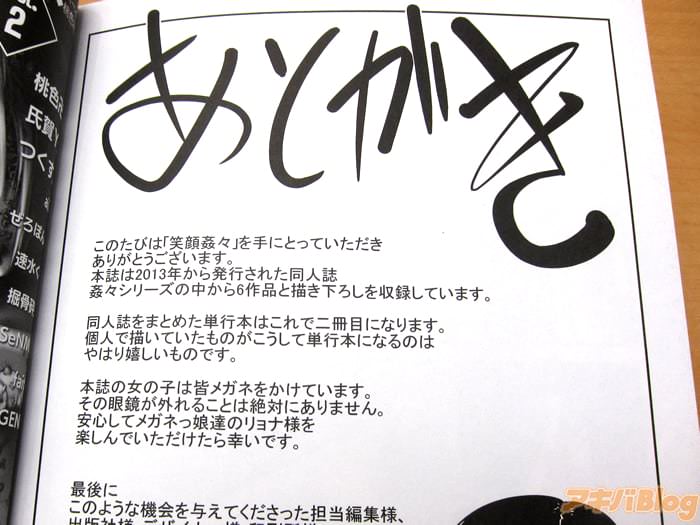 2
桃色
氏賀Y
つくす
ぜろほん
速水く
掘骨砕
SeNM
fai
GEN
あとがき
このたびは「笑顔姦々」を手にとっていただき
ありがとうございます。
本誌は2013年から発行された同人誌
姦々シリーズの中から6作品と描き下ろしを収録しています。
同人誌をまとめた単行本はこれで二冊目になります。
個人で描いていたものがこうして単行本になるのは
やはり嬉しいものです。
本誌の女の子は皆メガネをかけています。
その眼鏡が外れることは絶対にありません。
安心してメガネっ娘達のリョナ様を
楽しんでいただけたら幸いです。
最後に
このような機会を与えてくださった担当編集様、
アキバBlog